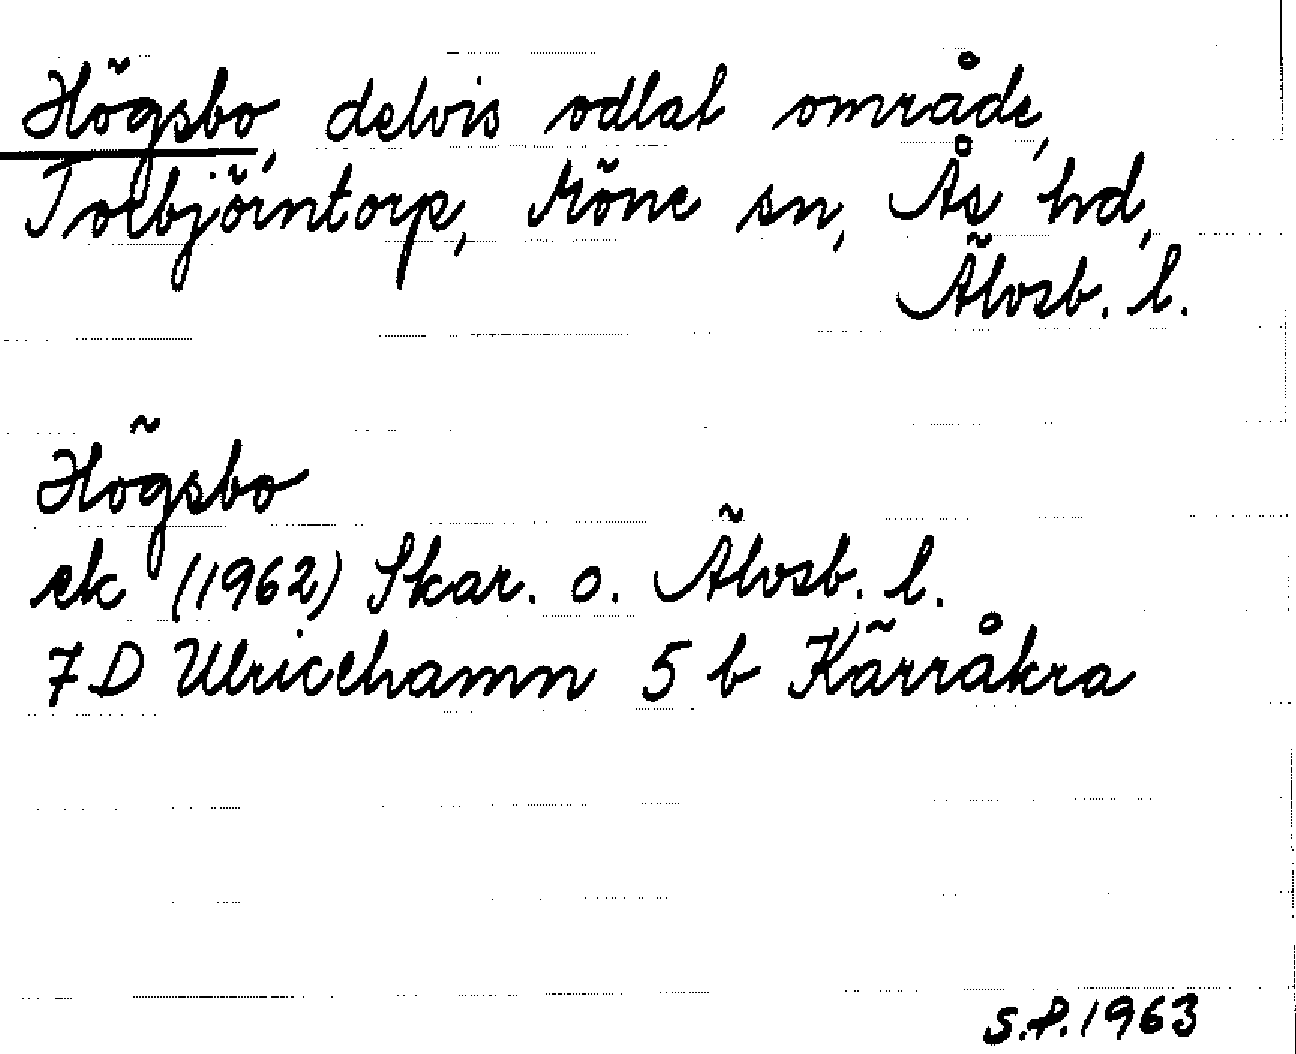 Högsbo, delvis odlat område,
Torbjörntorp, Köne sn, Ås hd,
Älvsb. l.
Högsbo
ek (1962) Skar. o. Älvsb. l.
7 D Ulricehamn 5 b Kärråkra
S.P. 1963